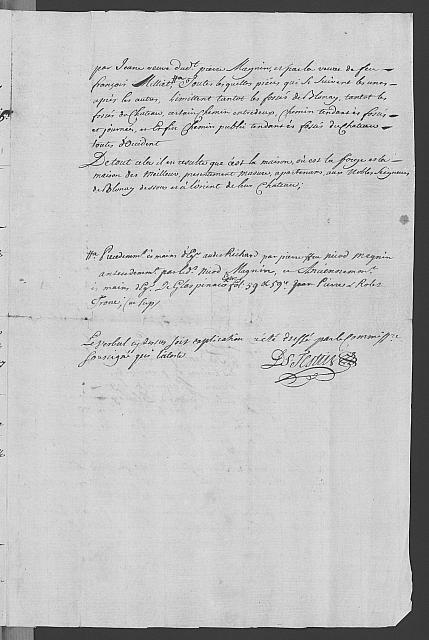 par Jeane veuve dudt. pierre Magnin, et par la veuve de feu
françois Milliet, ## Toutes lesquelles pièces qui se suivent les unes
après les autres, limittent tantot les fossés de Blonay, tantot les
fossés du Chateau, certain chemin entredeux, chemin tendant ès fossés
et journées, et enfin Chemin public tendant ès fossés du Chateau
toutes d'occident
De tout cela il en resulte que c'est la maison, où est la forge et la
maison des Meilleur, presentement masure, apartenans aux Nobles Seigneurs
de Blonay dessous et à l'orient de leur Chateau;
## Precedemment ès mains d'Eg. Richard par pierre ffeu nicod magnin
antecedemment par led. Nicod Magnin, et Anciennement
ès mains d'Eg. fol. 59 & 59 par Pierre & Rolet
Trone, (ut sup)
Le verbal cy dessus soit explication a été dressé par le Commissre
soussigné qui l'atteste